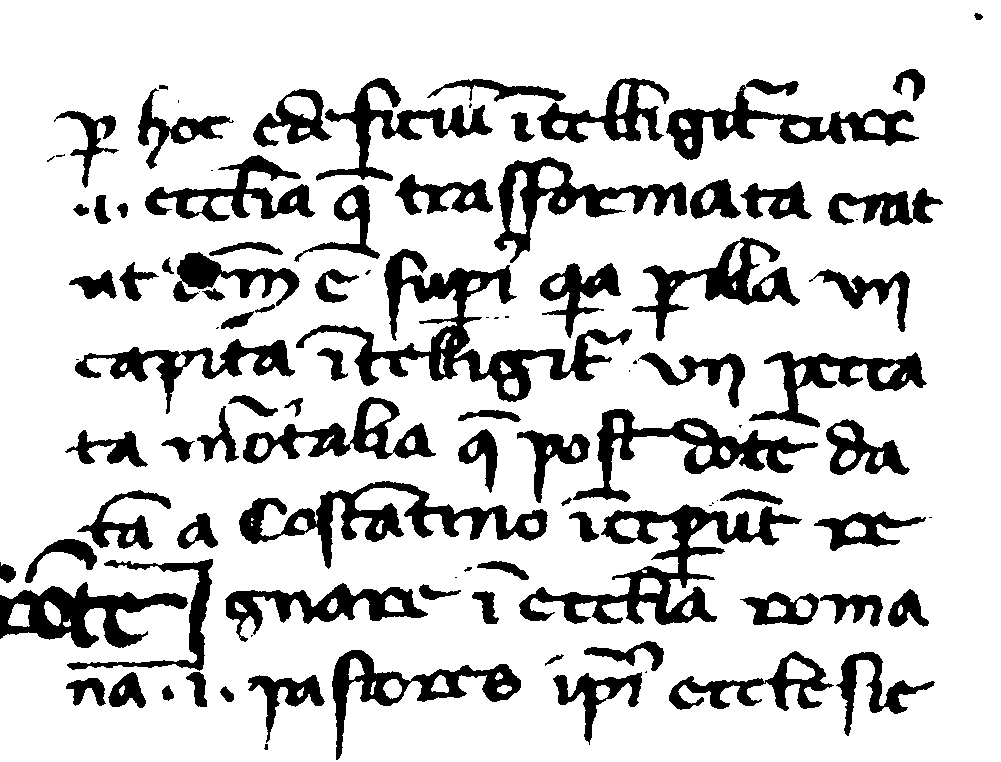 ꝑ hoc edeficiū ītelligit᷑ curr᷑
.i. eccƚia q̄ trasformata erat
ut dc̄m ē suꝑi᷑ qꝛa ꝑ illa vii
capita ītelligit᷑ vii pecca
ta mo᷑talia q̄ post dotē da
tā a Costātino īceꝑūt re
gnare ī eccƚia roma
na .i. pastores ip̄i᷑ ecclesie